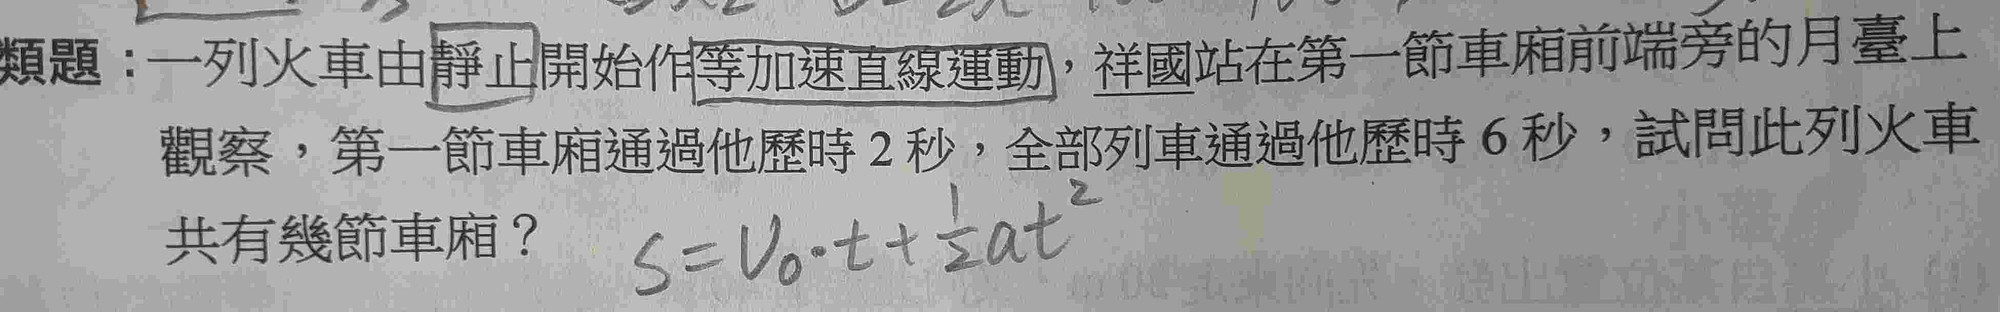 類題：一列火車由靜止開始作等加速直線運動，祥國站在第一節車廂前端旁的月臺上
觀察，第一節車廂通過他歷時 2 秒，全部列車通過他歷時 6 秒，試問此列火車
共有幾節車廂？
S=V₀·t+½at²